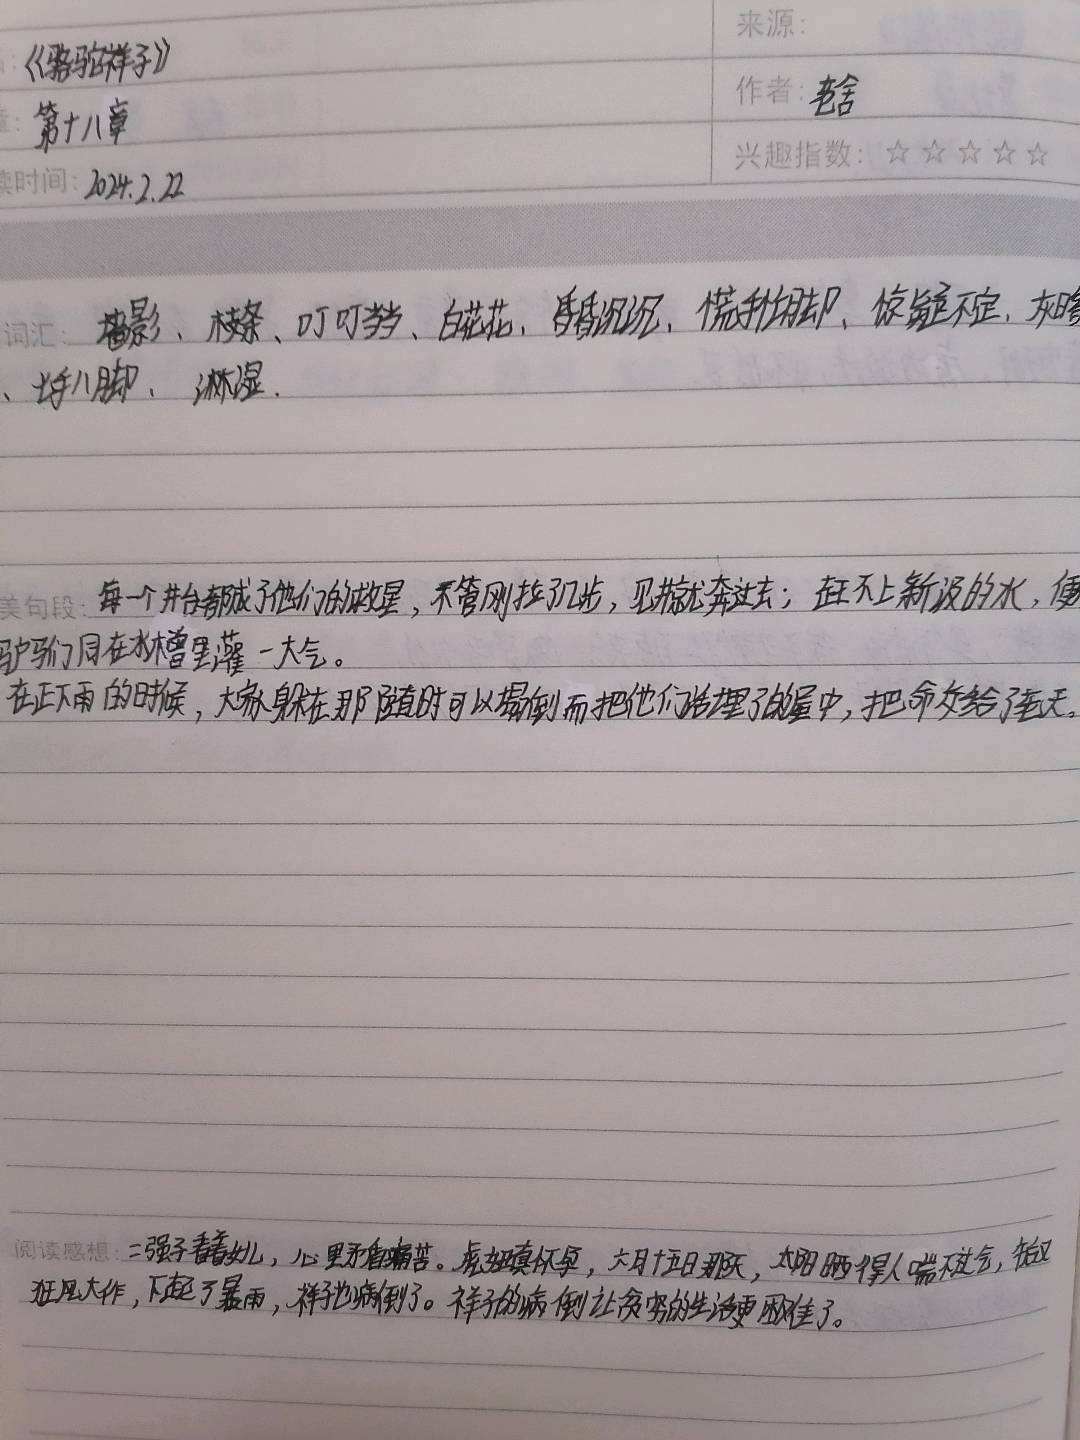 《骆驼祥子》
来源：
第十八章
作者：老舍
兴趣指数：☆☆☆☆☆
读时间：2024.2.22
词汇：树影、枝条、叮叮当当、白花花、昏昏沉沉、慌手忙脚、惊疑不定、灰暗
、七手八脚、淋湿.
美句段：每一个井台都成了他们的救星，不管刚拉了几步，见井就奔过去；赶不上新汲的水，便
驴马们同在水槽里灌一大气。
在正下雨的时候，大家躲在那随时可以塌倒而把他们活埋了的屋中，把命交给了老天。
阅读感想：二强子看着女儿，心里矛盾痛苦。虎妞真怀孕，六月十五日那天，太阳晒得人喘不过气，
狂风大作，下起了暴雨，祥子也病倒了。祥子的病倒让贫穷的生活更困难了。